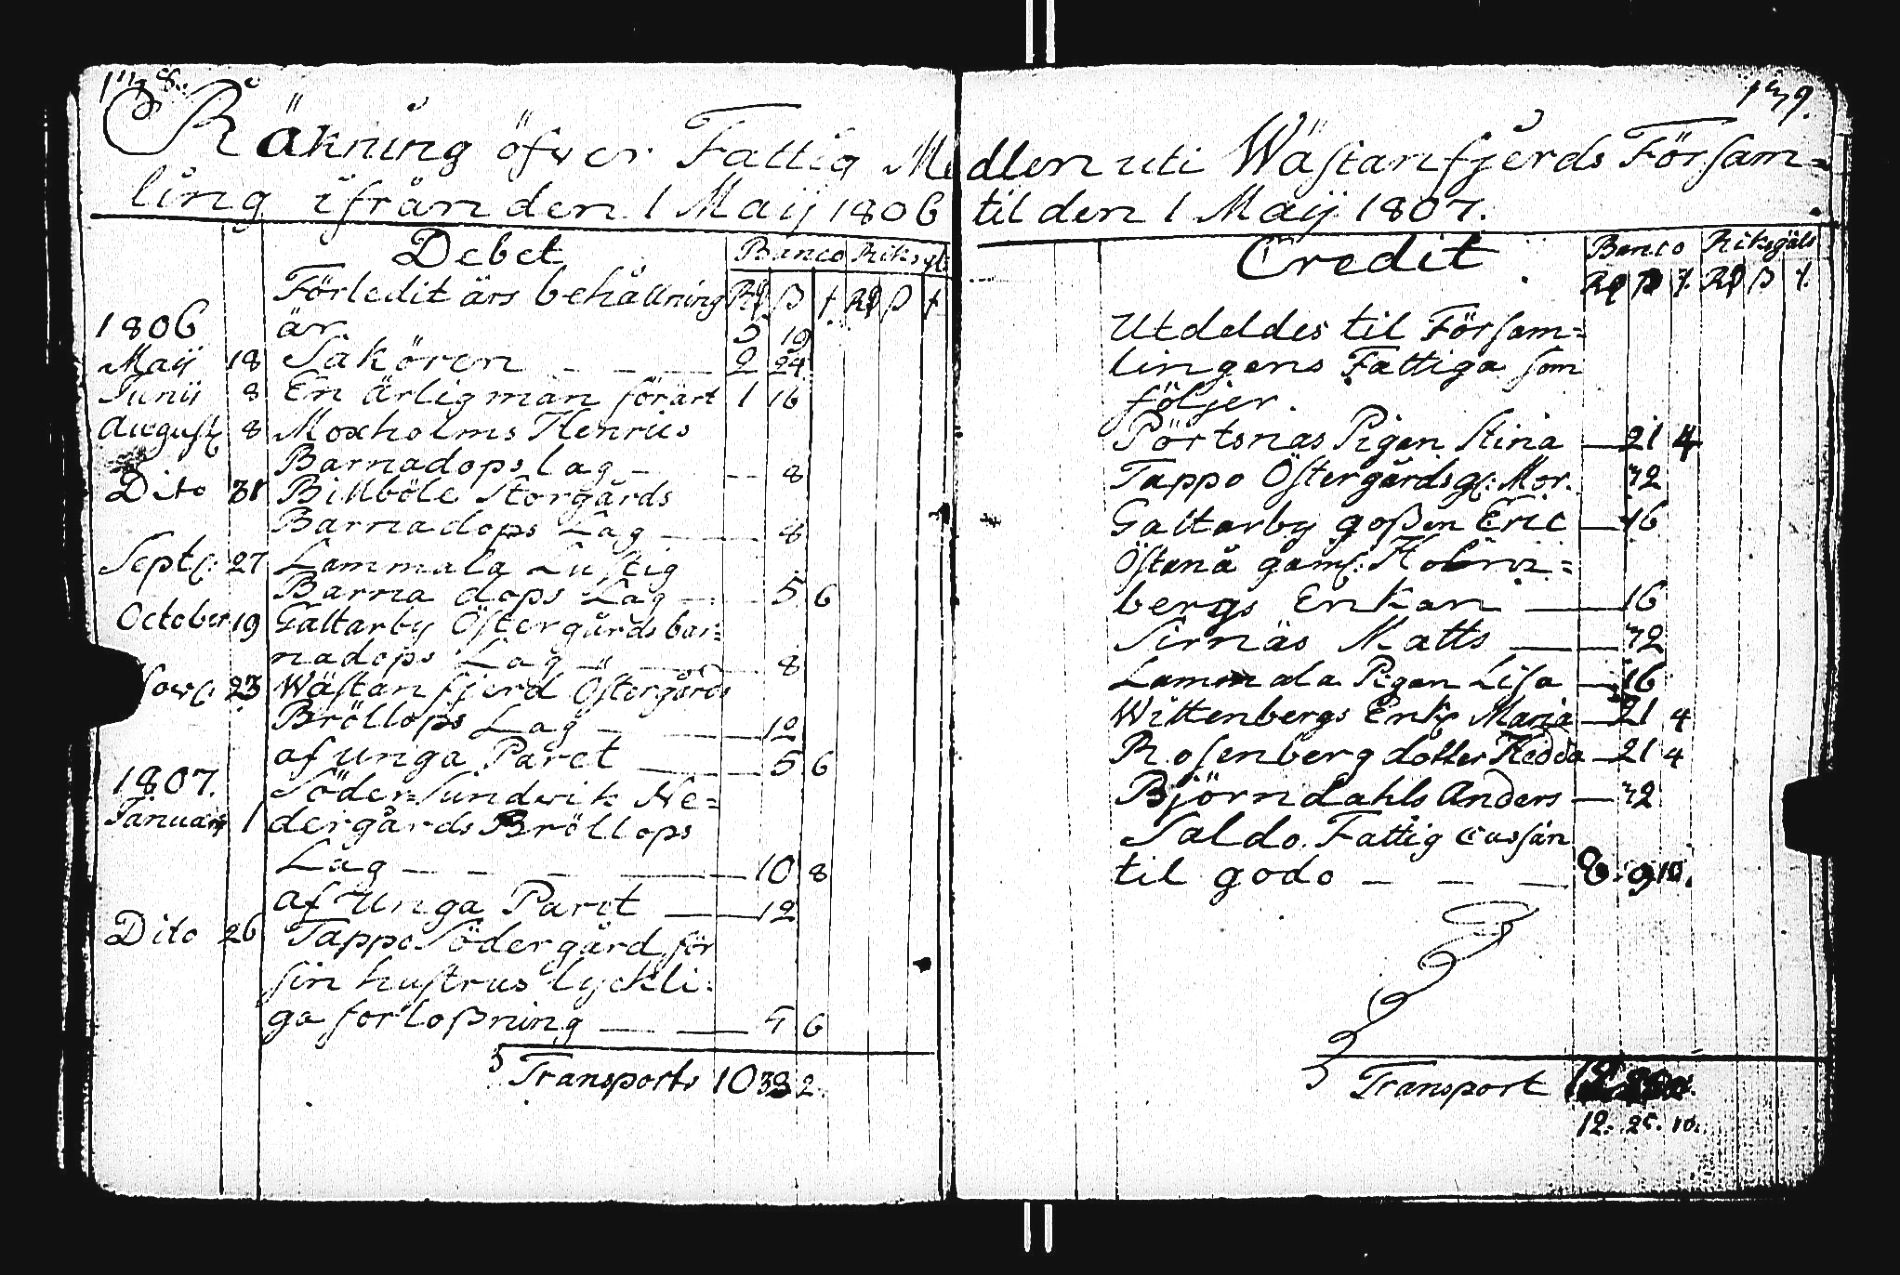 178.
Räkning öfver Fattig Me
ling ifrån den 1 Maij 1806
Debet
Banco Riksgl
Rd ß f Rd ß f
Förledit års behållning
1806 är 5 19
Maij 18 Sakören — — — 2 24
Junii 8 En ärlig man förärt 1 16
August 8 Moxholms Henrics
Barnadops lag — — — 8
Dito 31 Billböle Storgårds
Barnadops Lag — — 8
Septr: 27 Lammala Lustig
Barna dops Lag — — 5 6
October 19 Galtarby Östergårds bar=
nadops Lag — — 8
Novr: 23 Wästanfjerd Östergårds
Bröllops Lag — — 12
af unga Paret — — 5 6
1807.
Söder=Sundwik Ne=
Januarii 1 dergårds Bröllops
Lag — — — — 10 8
af Unga Paret — — 12
Dito 26 Tappo Södergård för
sin hustrus lyckli=
ga forloßning — — 5 6
Transports 10 38 2.
179.
dlen uti Wästanfjerds Försam=
til den 1 Maij 1807.
Credit
Banco Riksgäls
Rd ß f. Rd ß f.
Utdeldes til Försam=
lingens Fattiga som
följer.
Pörtsnäs Pigan Stina — 21 4
Tappo Östergårds gl: Mor. 32
Galtarby goßen Eric — 16
Östanå gaml:
bergs Enkan — 16
Sirnäs Matts — 32
Lammala Pigan Lisa — 16
Wittenbergs Enka Maria — 21 4
Rosenberg dotter Hedda — 21 4
Björndahls Anders — 32
Saldo. Fattig Cassan
til godo — — — 8. 9. 10.
Transport
12. 25. 10.